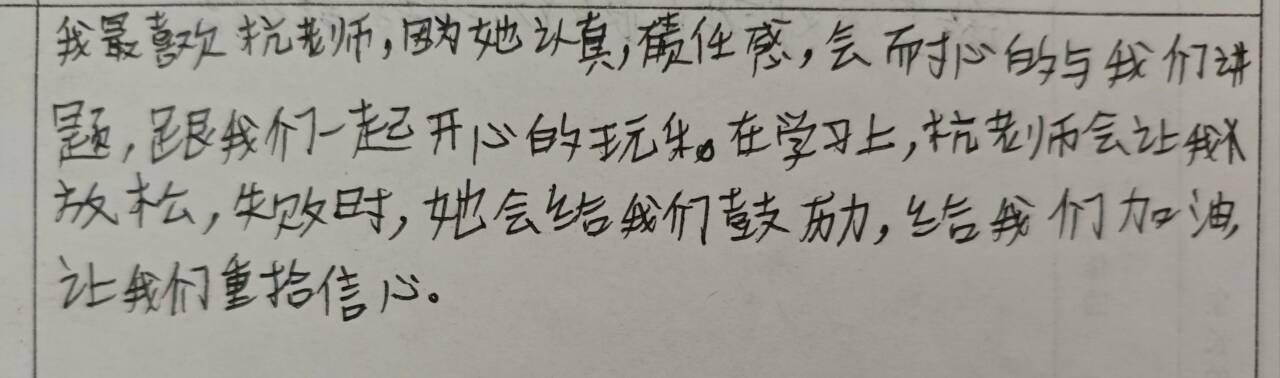 我最喜欢杭老师,因为她认真,责任感,会耐心的与我们讲
题,跟我们一起开心的玩乐。在学习上,杭老师会让我
放松,失败时,她会给我们鼓励,给我们加油,
让我们重拾信心。